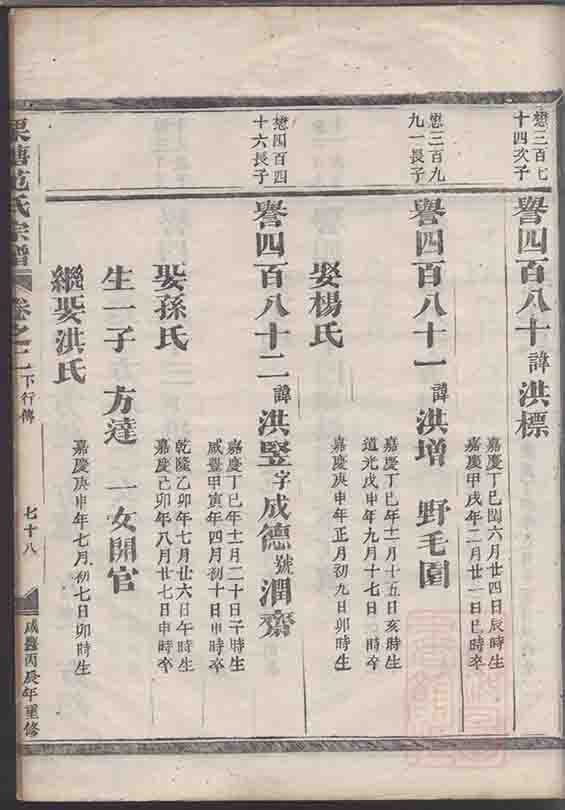 懋三百七
十四次子
譽四百八十 諱洪標
嘉慶丁巳閏六月廿四日辰時生
嘉慶甲戌年二月廿一日巳時卒
懋三百九
九一長子
譽四百八十一 諱洪增 野毛園
嘉慶丁巳年十二月十五日亥時生
道光戊申年九月十七日 時卒
娶楊氏
嘉慶庚申年正月初九日卯時生
懋四百四
十六長子
譽四百八十二 諱洪竪 字成德 號潤齋
嘉慶丁巳年十一月二十日子時生
咸豐甲寅年四月初十日申時卒
娶孫氏
乾隆乙卯年七月廿六日午時生
嘉慶己卯年八月廿七日申時卒
生一子 方達 一女開官
繼娶洪氏
嘉慶庚申年七月初七日卯時生
范氏宗譜 卷之二 下行傳 七十八 咸豐丙辰年重修